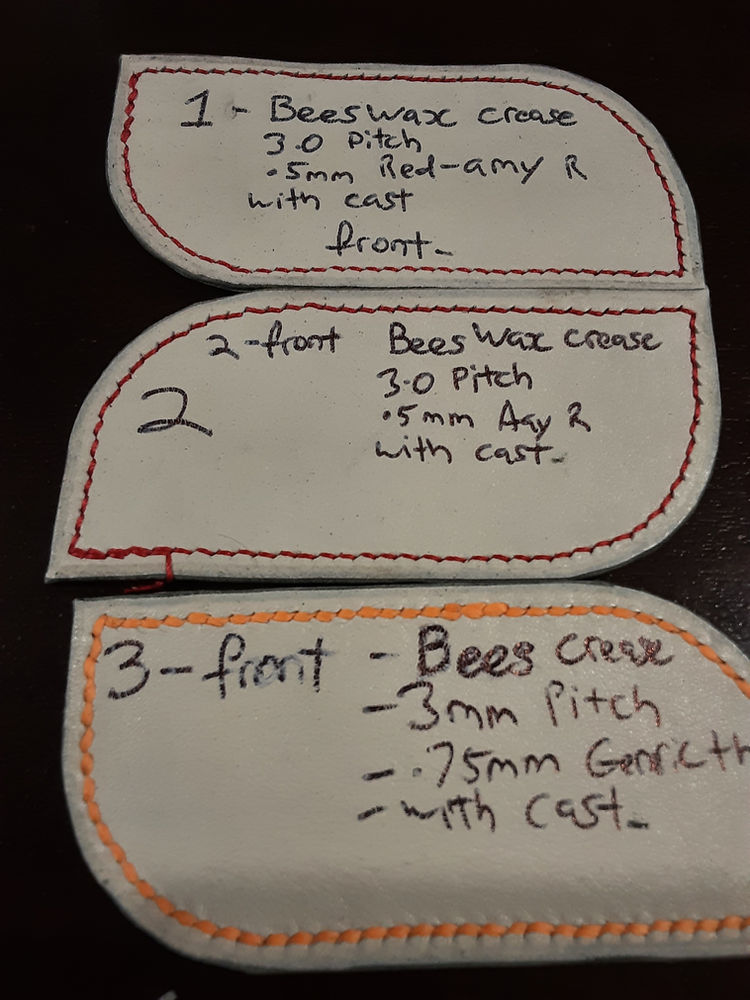 1 - Beeswax crease
3.0 Pitch
.5mm Red-amy R
with cast
front-
2-front Bees Wax crease
2
3.0 Pitch
.5mm R
with cast-
3-front - Bees crease
-3mm Pitch
- .75mm
- with cast-